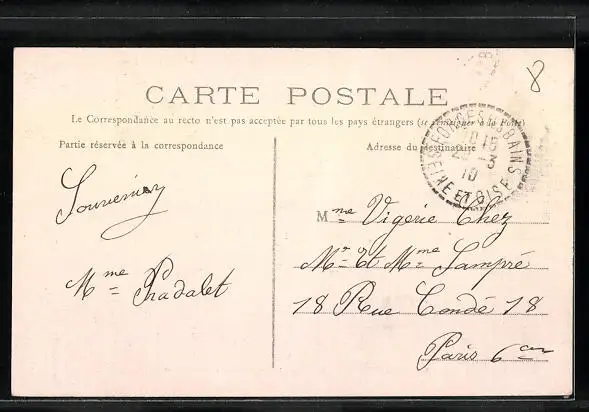 8
CARTE POSTALE
Le Correspondance au recto n'est pas acceptée par tous les pays étrangers (se renseigner à la Poste)
Partie réservée à la correspondance
Adresse du destinataire
FORGES-LES-BAINS
SEINE ET OISE
10
Souvenir
Mme Pradalet
Mme Vigérie Chez
Mr Et Mme Lampré
18 Rue Condé 18
Paris 6em